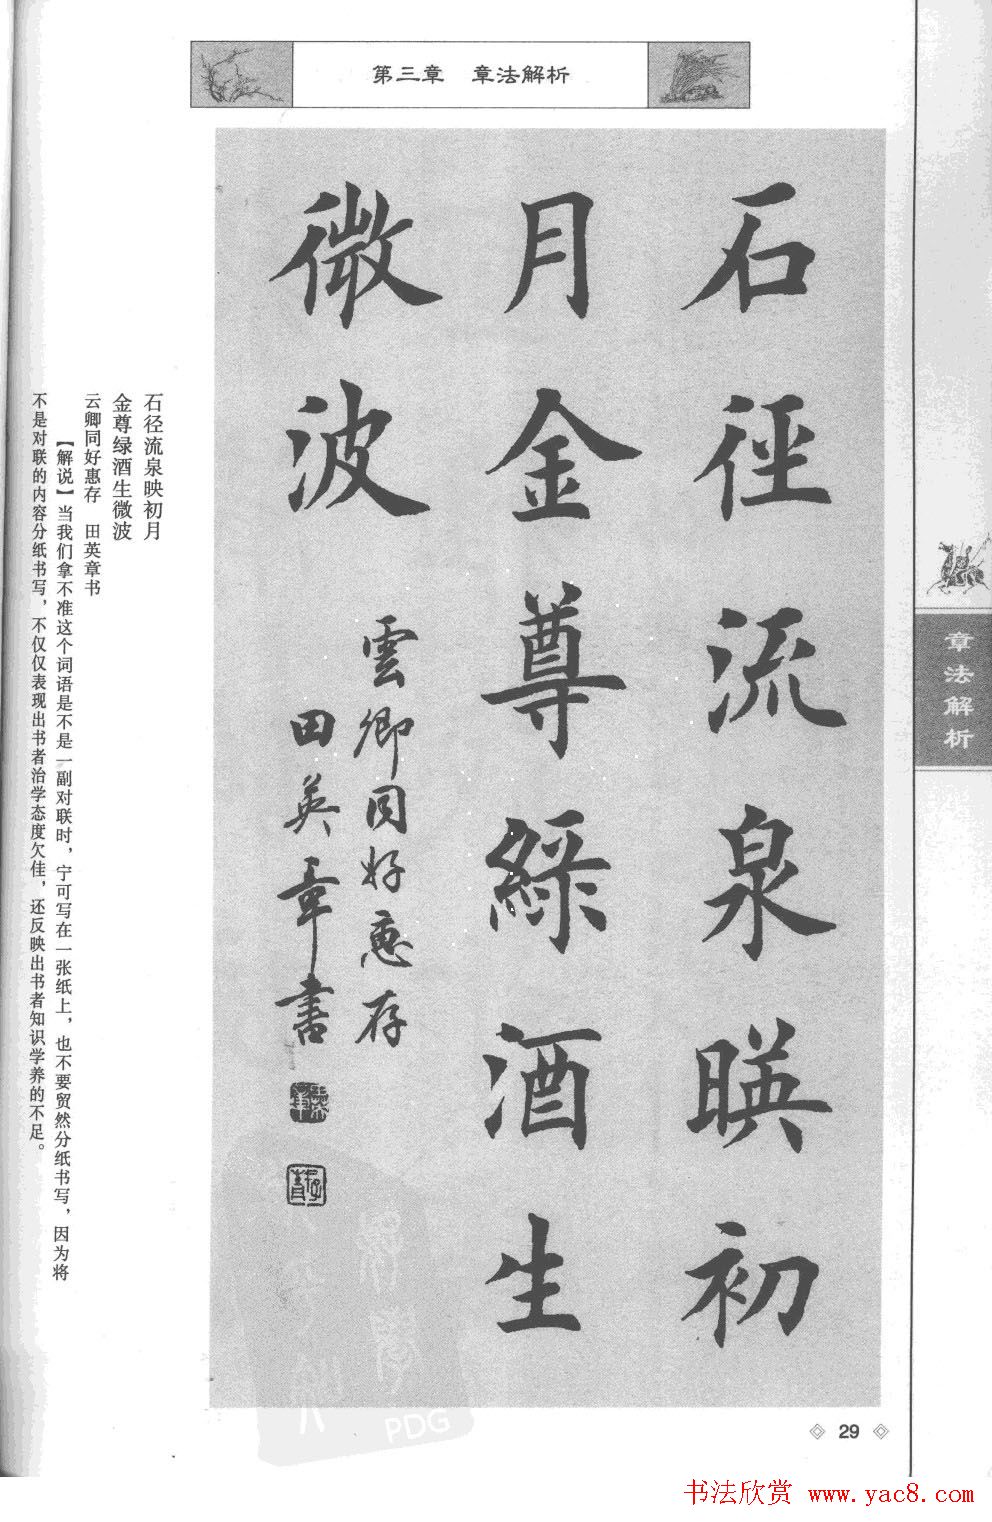 第三章　章法解析
石徑流泉暎初
月金尊綠酒生
微波
雲卿同好惠存
田英章書
石径流泉映初月
金尊绿酒生微波
云卿同好惠存　田英章书
【解说】当我们拿不准这个词语是不是一副对联时，宁可写在一张纸上，也不要贸然分纸书写，因为将
不是对联的内容分纸书写，不仅仅表现出书者治学态度欠佳，还反映出书者知识学养的不足。
章法解析
PDG
29
书法欣赏 www.yac8.com